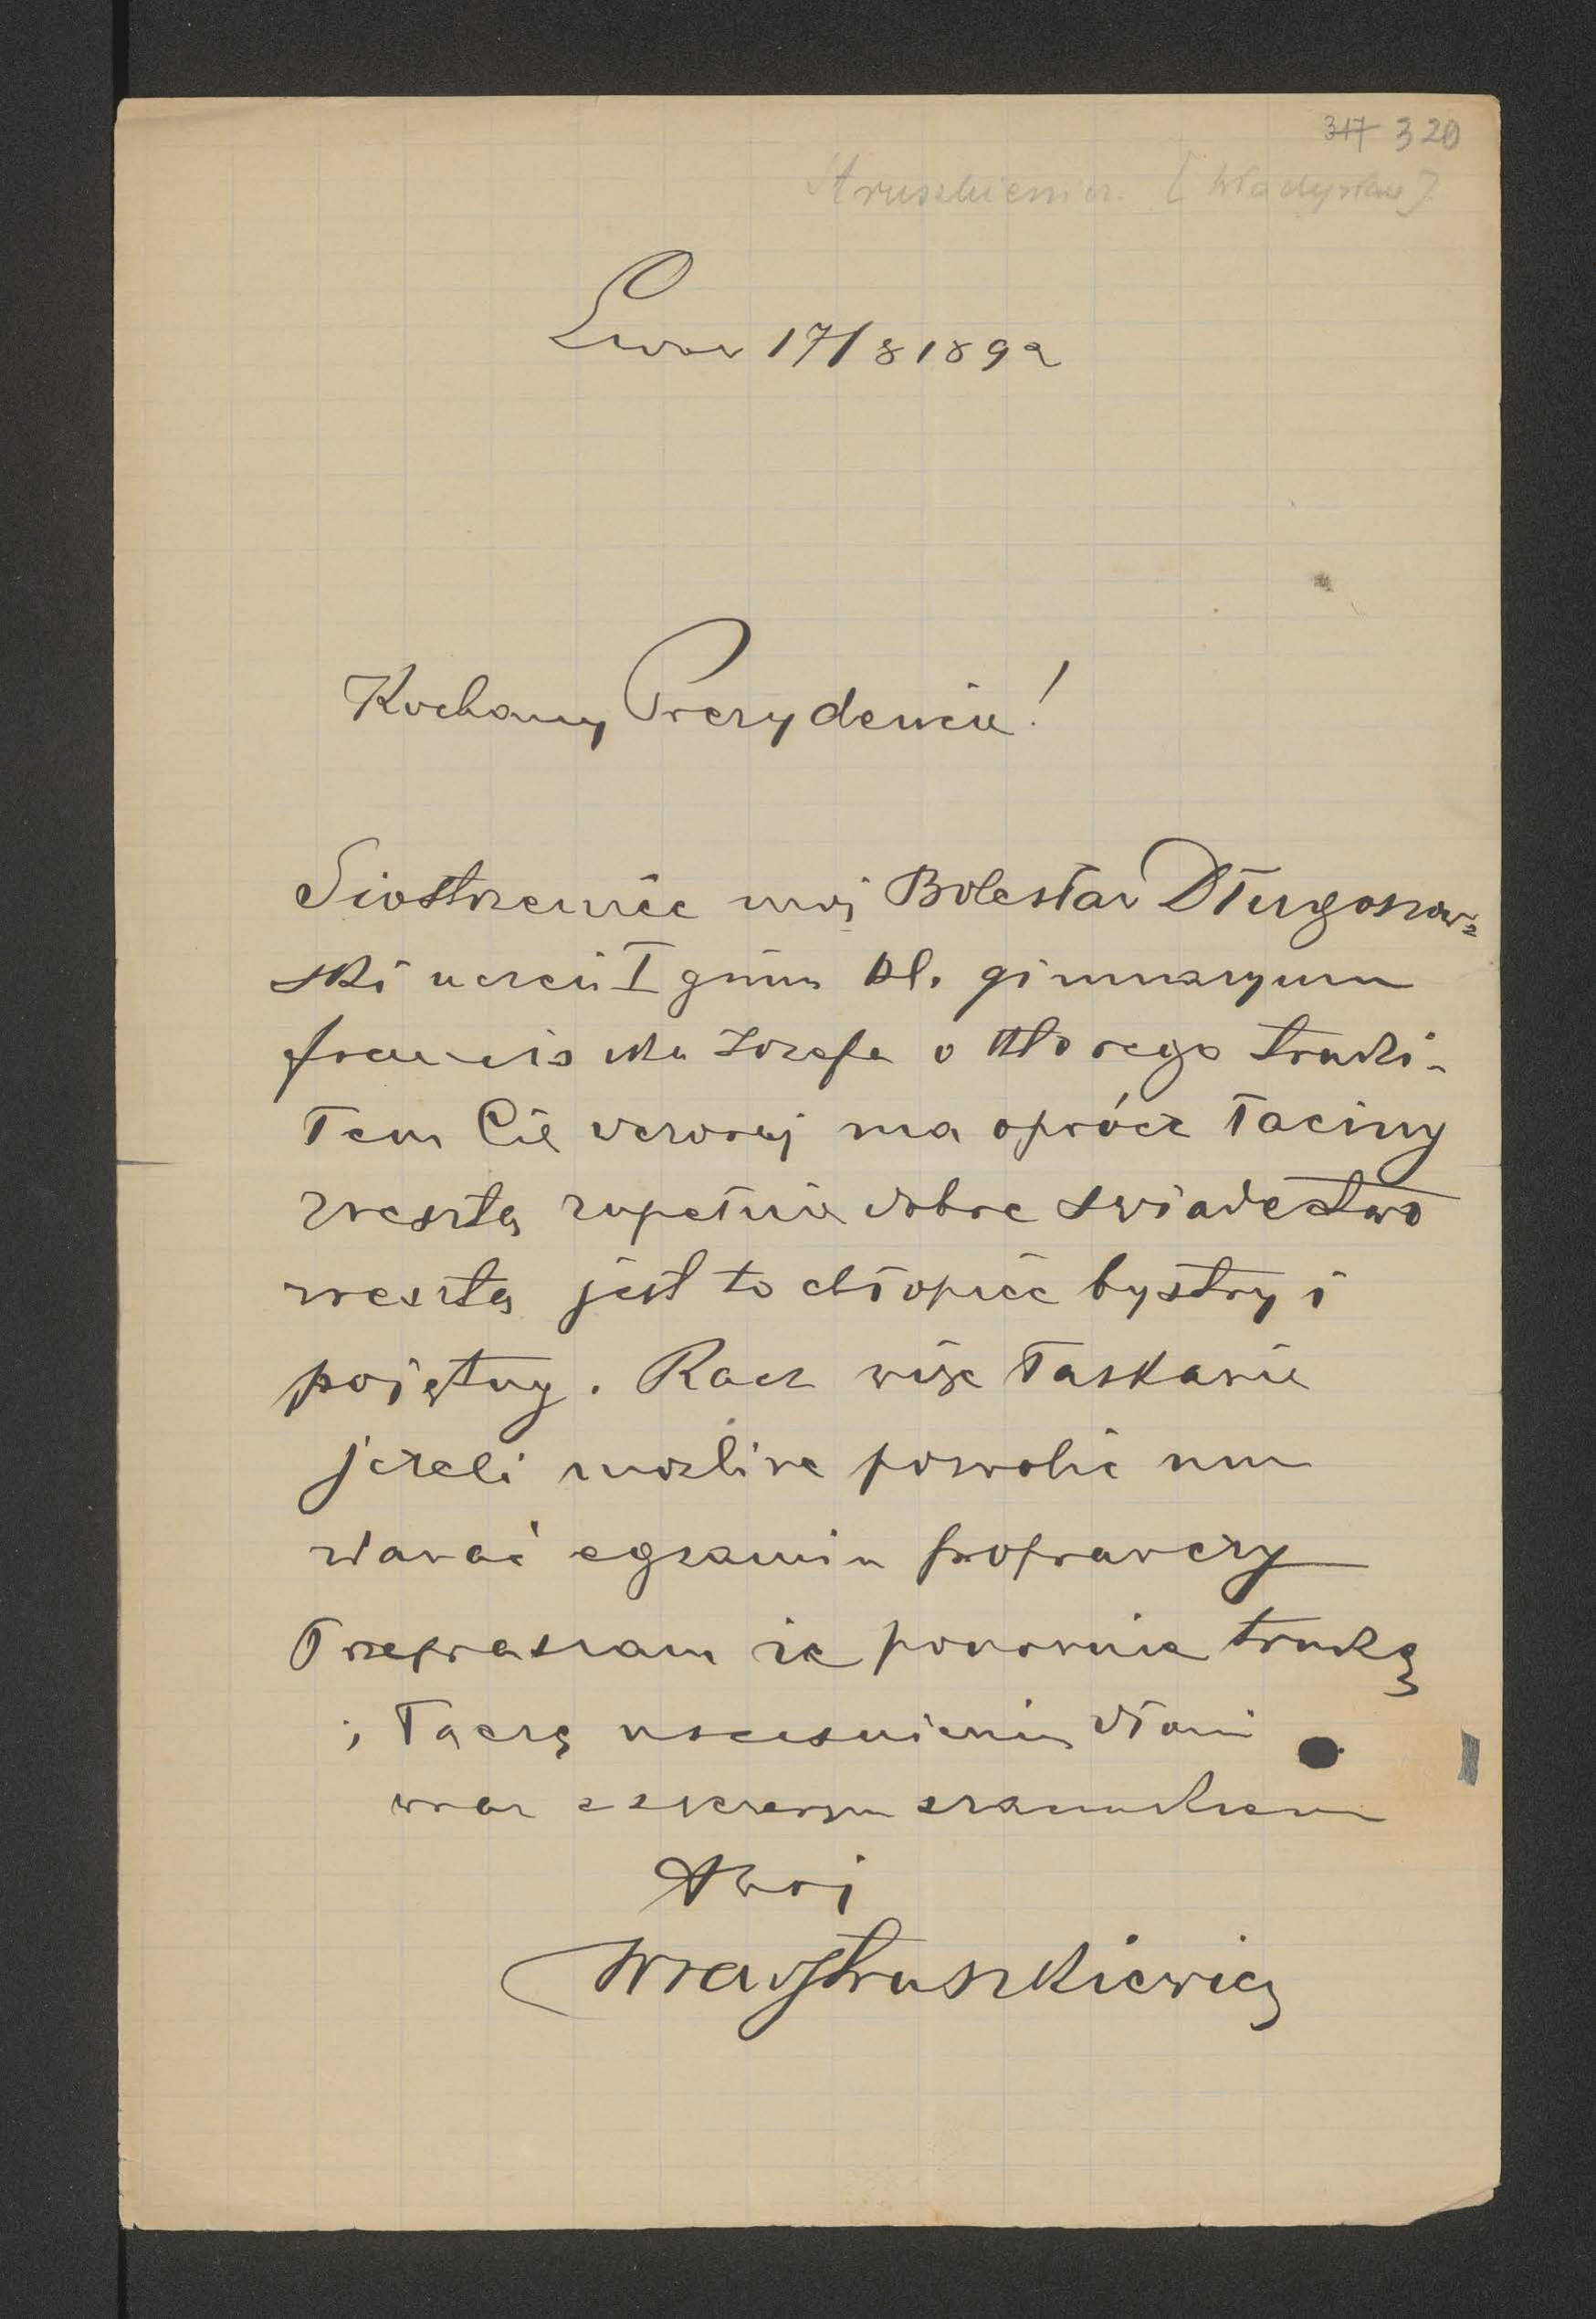 317 320
Struszkiewicz [Władysław]
Lwow 17/8 1892
Kochany Prezydencie!
Siostrzeniec moj Bolesław Długoszow=
ski uczeń I gimn kl. gimnazyum
franciszka Jozefa o ktorego trudzi-
łem Cię wczoraj ma oprócz łaciny
zresztą zupełnie dobre swiadectwo
zresztą jest to chłopiec bystry i
pojętny. Racz więc łaskawie
jeżeli możliwe pozwolić mu
zdawać egzamin poprawczy
Przepraszam że ponownie trudzę
i łączę uscisnienie dłoni
wraz z szczerym szacunkiem
Twoj
WładStruszkiewicz